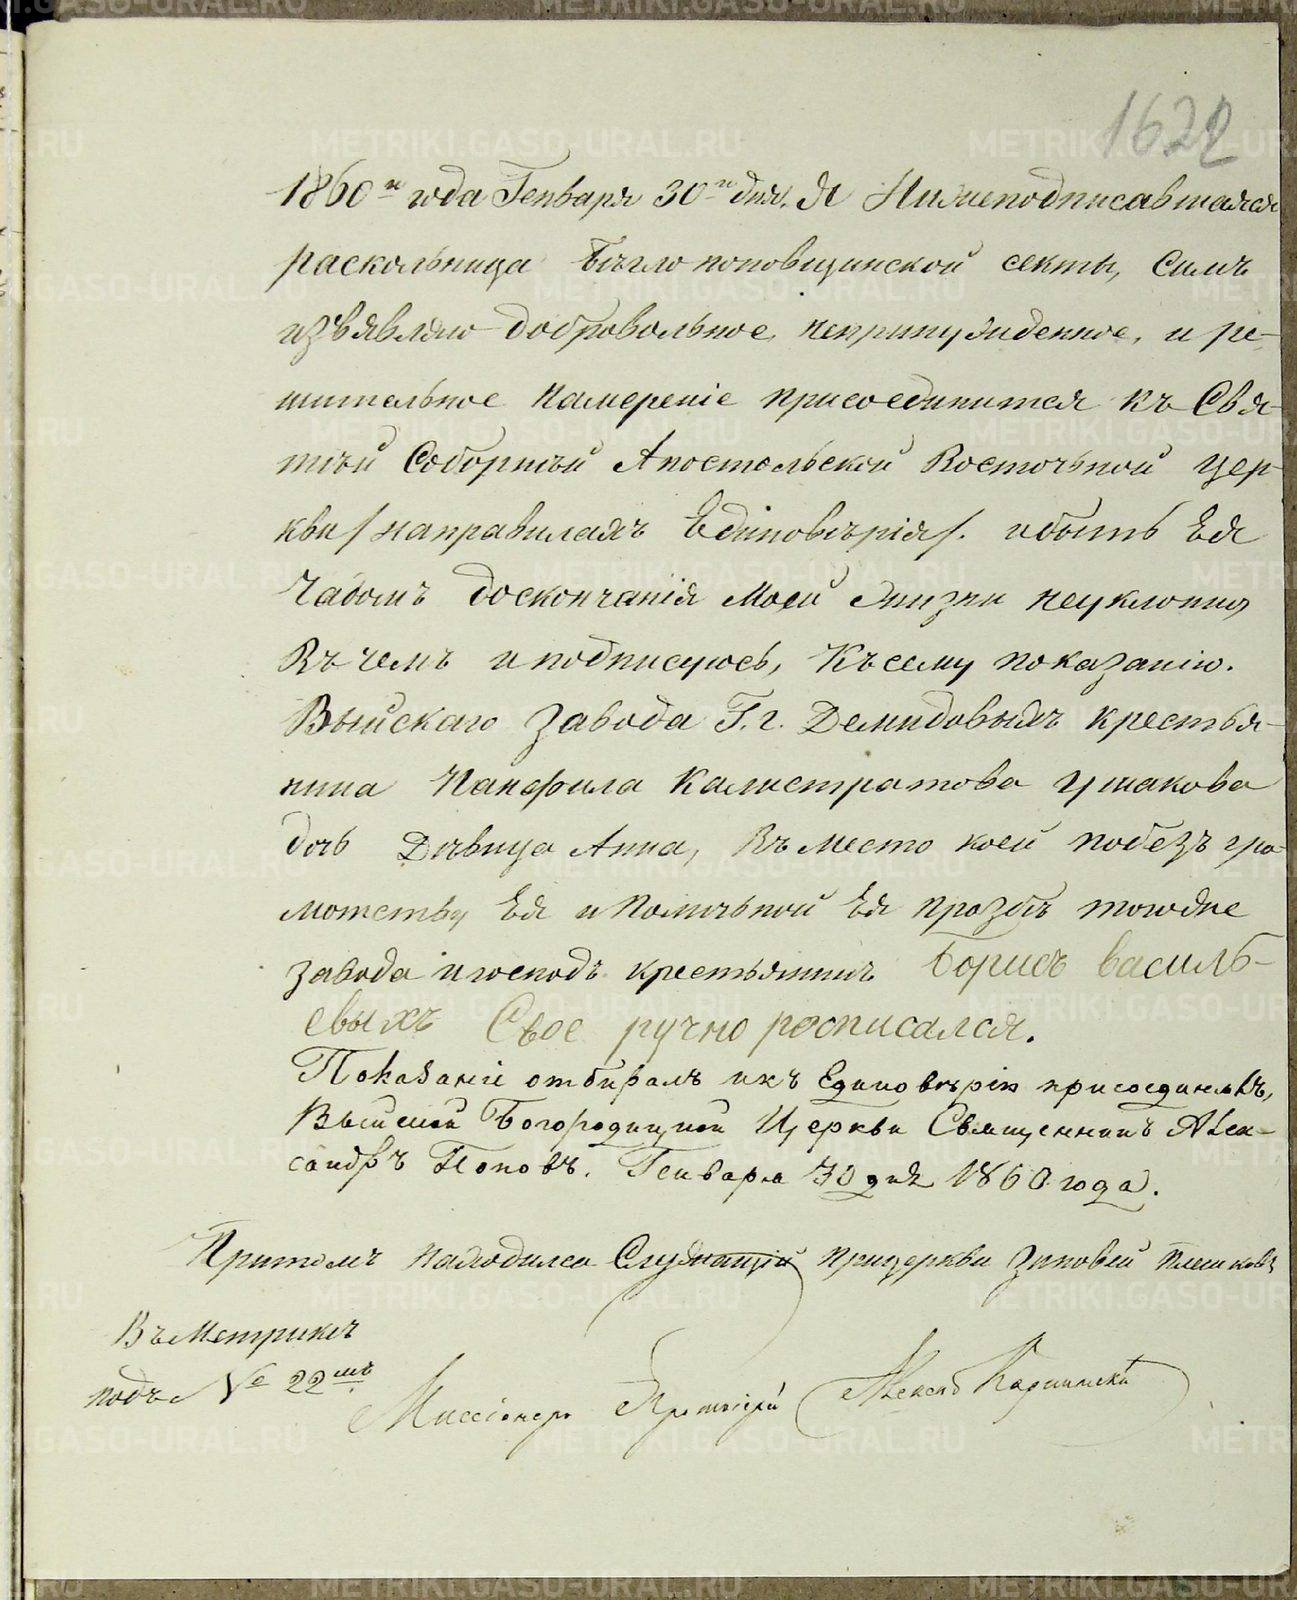 1622
1860го года Генваря 30го дня. Я Нижеподписавшаяся
раскольница бѣглопоповщинской секты, Симъ
изъявляю добровольное, непринужденное, и ре-
шительное намереніе присоединится къ Свя-
тѣй Соборнѣй Апостольской Восточьной цер-
кви /на правилахъ Едіновѣрія/. и быть Ея
Чадомъ до скончанія Моей Жизни неуклонно,
Въ чемъ и подписуюсь, Къ сему показанію.
Выйскаго завода Г. г. Демидовыхъ крестья-
нина Панфила Калистратова Ушакова
дочь Дѣвица Анна, Въ место коей по безъ гра-
мотству Ея и Поличьной Ея прозбѣ тогодже
завода и господъ крестьянинъ Борисъ Василь-
евыхъ Свое ручно росписался.
Показаніе отбиралъ и къ Единоверію присоединялъ,
Выйской Богородицкой Церкви Священникъ Алек-
сандръ Поповъ. Генваря 30 дня 1860 года.
Притомъ находился Служащій при церкви Зиновей Плешковъ
Въ Метрикѣ
подъ № 22мъ
Миссіонеръ Протоіерей Александ Карпинскій